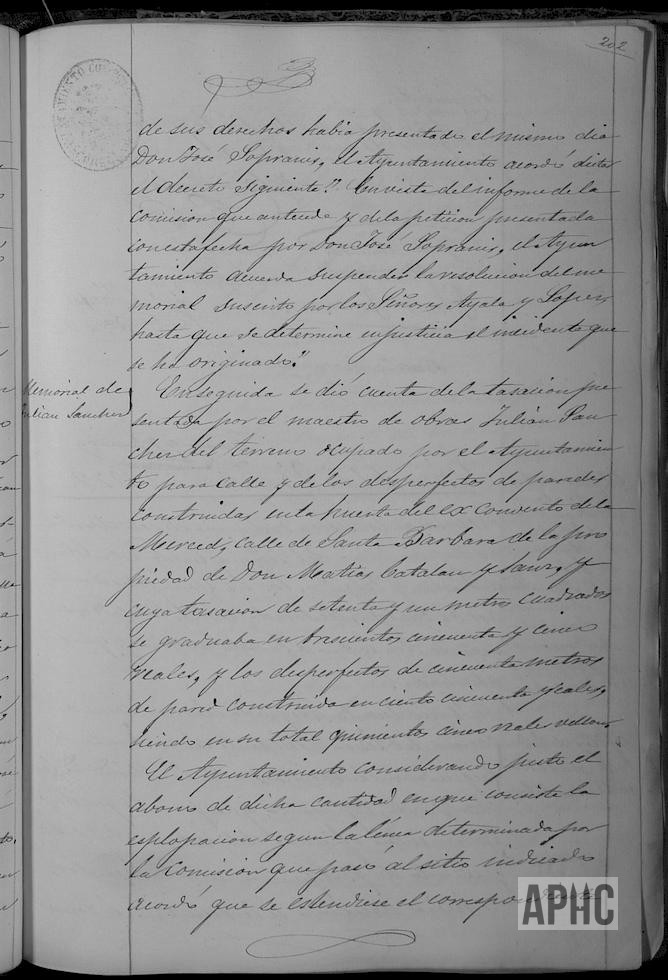 202
de sus derechos habia presentado el mismo dia
Don José Sopranis, el Ayuntamiento acordó dictar
el decreto siguiente." En vista del informe de la
comision que entiende y de la peticion presentada
con esta fecha por Don José Sopranis, el Ayun
tamiento acuerda suspender la resolucion del me
morial suscrito por los Señores Ayala y Lopez,
hasta que se determine en justicia el incidente que
se ha originado."
Memorial de
Julian Sanchez
En seguida se dió cuenta de la tasacion pre
sentada por el maestro de obras Julian San
chez del terreno ocupado por el Ayuntamien
to para calle y de los desperfectos de paredes
construidas en la huerta del ex convento de la
Merced, calle de Santa Barbara de la pro
piedad de Don Matias Catalan y Sanz, y
cuya tasacion de setenta y un metros cuadrados
se graduaba en trescientos cincuenta y cinco
reales, y los desperfectos de cincuenta metros
de pared construida en ciento cincuenta reales,
siendo en su total quinientos cinco reales vellon.
El Ayuntamiento considerando justo el
abono de dicha cantidad en que consiste la
esplopacion segun la linea determinada por
la Comision que pasó al sitio indicado
acordó que se estendiese el correspondiente
APHC